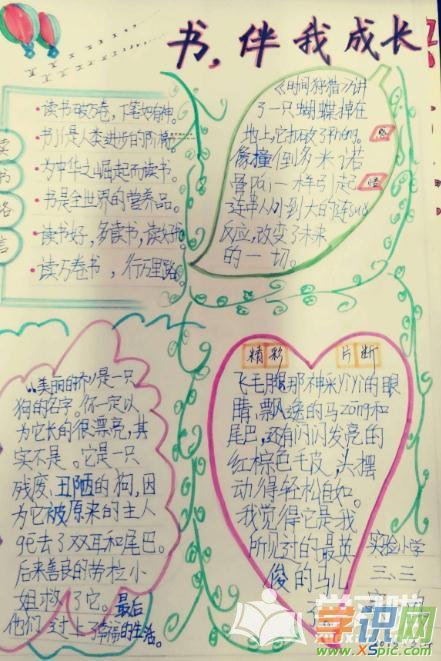 书，伴我成长
读书格言
读书破万卷，下笔如有神。
书是人类进步的阶梯
为中华之崛起而读书。
书是全世界的营养品。
读书好，多读书，读好书
读万卷书，行万里路。
《时间狩猎》讲
了一只蝴蝶掉在
地上，它打破了
像撞倒多米诺
骨pái一样引起
连串从小到大的连suǒ
反应，改变了未来
的一切。
感
悟
美丽的和是一只
狗的名字。你一定以
为它长的很漂亮，其
实不是。它是一只
残废、丑陋的狗，因
为它被原来的主人
去了双耳和尾巴。
后来善良的劳拉小
姐了它。最后
他们过上了幸福的生活。
精彩
片断
飞毛腿那神采yìyì的眼
睛，飘逸的马zōng和
尾巴，还有闪闪发亮的
红棕色毛皮，头摆
动得轻松自如。
我觉得它是我
所见过的最英
俊的马儿
实验小学
三、三
学识网
www.XSpic.com